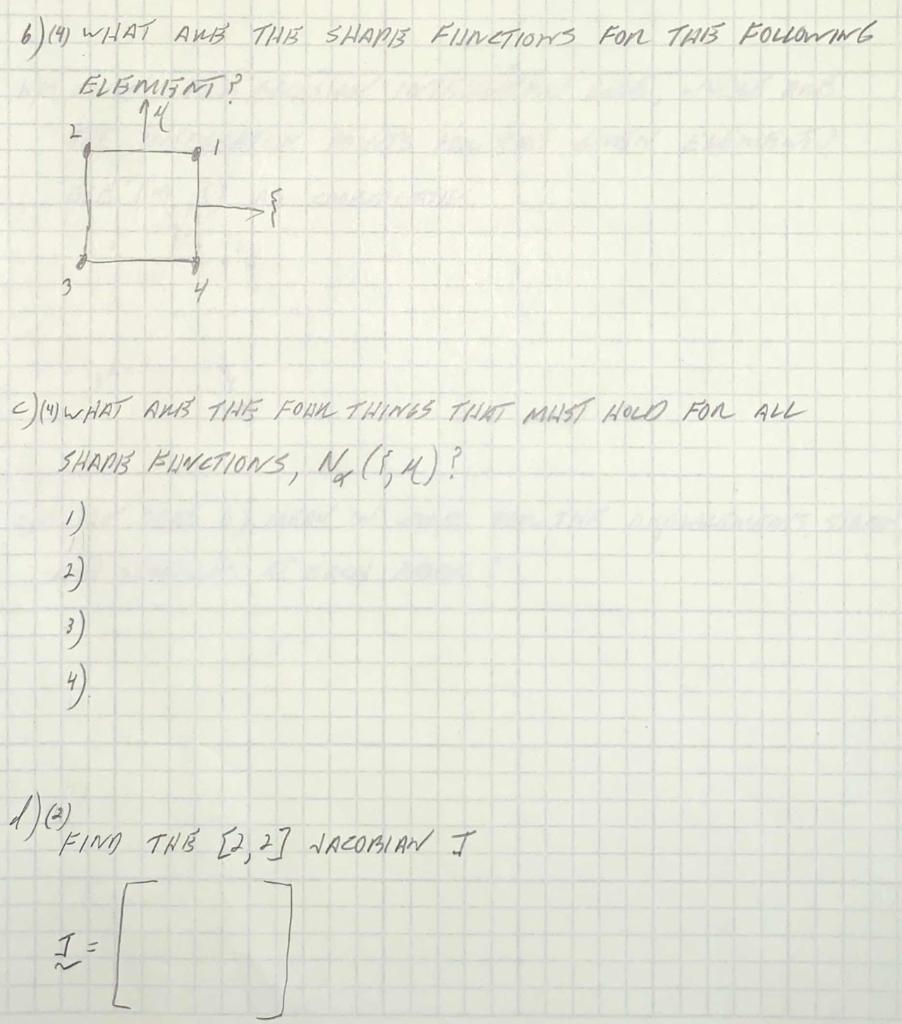 b) (4) WHAT ARE THE SHAPE FUNCTIONS FOR THE FOLLOWING
ELEMENT?
η
2
1
ξ
3
4
c) (4) WHAT ARE THE FOUR THINGS THAT MUST HOLD FOR ALL
SHAPE FUNCTIONS, Nα (ξ, η) ?
1)
2)
3)
4)
d) (2)
FIND THE [2,2] JACOBIAN J
J =